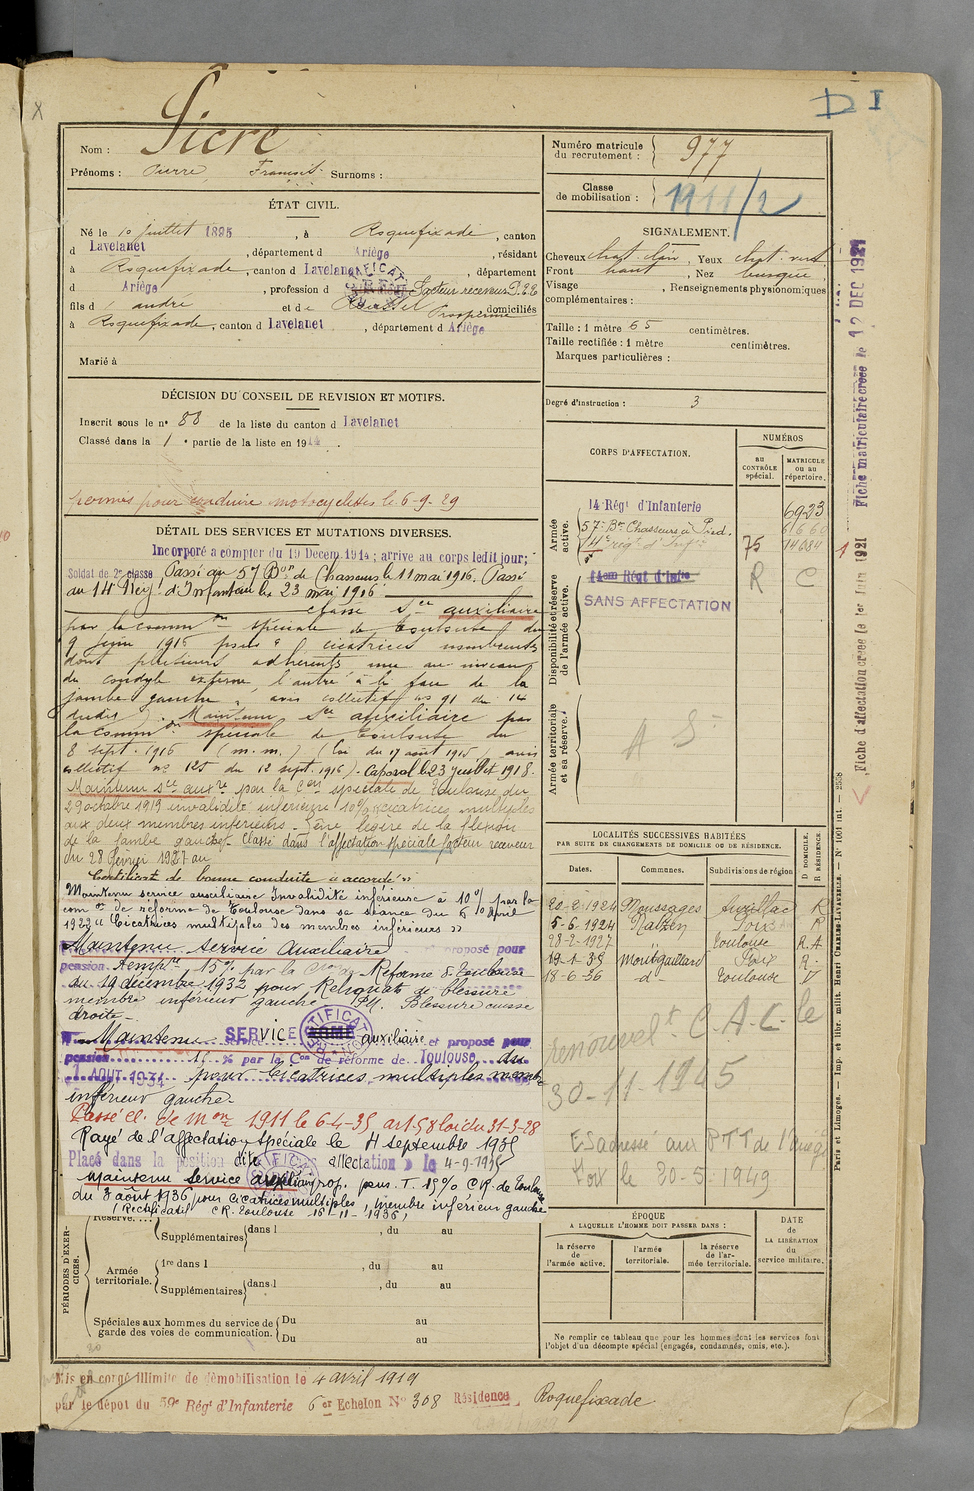 D I
Nom : Sicre
Prénoms : Pierre, François Surnoms :
ÉTAT CIVIL.
Né le 10 juillet 1895, à Roquefixade, canton
d Lavelanet, département d Ariège, résidant
à Roquefixade, canton d Lavelanet, département
d Ariège, profession d facteur receveur P.T.T.
fils d andré et de Prospérine domiciliés
à Roquefixade, canton d Lavelanet, département d Ariège
Marié à
DÉCISION DU CONSEIL DE REVISION ET MOTIFS.
Inscrit sous le n° 88 de la liste du canton d Lavelanet
Classé dans la 1 e partie de la liste en 1914.
permis pour conduire motocyclettes le 6-9-29
DÉTAIL DES SERVICES ET MUTATIONS DIVERSES.
Incorporé à compter du 19 Décem. 1914 ; arrivé au corps ledit jour ;
Soldat de 2e classe Passé au 57 Bon de Chasseurs le 11 mai 1916. Passé
au 14 Régt d'Infanterie le 23 mai 1916
classé Sce auxiliaire
par la Common spéciale de Toulouse du
9 juin 1916 pour cicatrices nombreuses
dont plusieurs adhérents une au niveau
du condyle externe, l'autre à la face de la
jambe gauche, avis collectif n° 91 du 14
dudit). Maintenu Sce auxiliaire par
la Common spéciale de Toulouse du
8 sept. 1916 (m.m.) (loi du 17 août 1915) avis
collectif n° 125 du 12 sept. 1916). Caporal le 23 juillet 1918.
Maintenu sce auxre par la Con spéciale de Toulouse du
29 octobre 1919 invalidité inférieure 10% cicatrices multiples
aux deux membres inférieurs - gêne légère de la flexion
de la jambe gauche. Classé dans l'affectation spéciale facteur receveur
du 28 février 1927 au
Certificat de bonne conduite "accordé"
Maintenu service auxiliaire Invalidité inférieure à 10% par la
com on de réforme de Toulouse dans sa séance du 6 avril
1922 "Cicatrices multiples des membres inférieurs"
Maintenu Service Auxiliaire proposé pour
pension temprre 15% par la Con de Réforme de Toulouse
du 19 décembre 1932 pour Reliquats de blessure
membre inférieur gauche P.M. Blessure cuisse
droite.
Maintenu SERVICE auxiliaire et proposé pour
pension 15 % par la Con de réforme de Toulouse du
1 AOUT 1934 pour Cicatrices multiples membre
inférieur gauche.
Passé cl. de mon 1911 le 6-4-35 art. 58 loi du 31-3-28
Rayé de l'affectation spéciale le 4 septembre 1935
Placé dans la position dite affectation le 4-9-1935
Maintenu Service auxiliaire prop. pens. T. 15% C.R. de Toulouse
du 3 août 1936 pour cicatrices multiples, membre inférieur gauche
(Rectificatif C.R. Toulouse 16-11-1936)
PÉRIODES D'EXERCICES.
Réserve.
Supplémentaires dans l , du au
Armée territoriale.
1re dans l , du au
Supplémentaires dans l , du au
Spéciales aux hommes du service de garde des voies de communication.
Du au
Du au
Mis en congé illimité de démobilisation le 4 avril 1919
par le dépôt du 59e Régt d'Infanterie 6 er Echelon N° 308 Résidence Roquefixade
Numéro matricule du recrutement : 977
Classe de mobilisation : 1911/2
SIGNALEMENT.
Cheveux chat. clair, Yeux chat. vert
Front haut, Nez busqué
Visage , Renseignements physionomiques
complémentaires :
Taille : 1 mètre 65 centimètres.
Taille rectifiée : 1 mètre centimètres.
Marques particulières :
Degré d'instruction : 3
CORPS D'AFFECTATION.
NUMÉROS
au CONTRÔLE spécial.
MATRICULE ou au répertoire.
Armée active.
14 Régt d'Infanterie 6923
57e Bon Chasseurs à Pied. 6660
14e rég. d'Infie 75 14084
Disponibilité et réserve de l'armée active.
14em Régt d'Infie R C
SANS AFFECTATION
Armée territoriale et sa réserve.
A S
LOCALITÉS SUCCESSIVES HABITÉES
PAR SUITE DE CHANGEMENTS DE DOMICILE OU DE RÉSIDENCE.
Dates. Communes. Subdivisions de région D DOMICILE. R RÉSIDENCE.
20-2-1924 Moussages Aurillac R
5-6-1924 Nalzen Foix R
28-2-1927 Toulouse R.A
19-1-35 Montgaillard Foix R.
18-6-36 d° Toulouse D
renouvelt C.A.C. le
30-11-1945
ES adressé aux PTT de l'Ariège
Foix le 20-5-1949
ÉPOQUE
A LAQUELLE L'HOMME DOIT PASSER DANS :
la réserve de l'armée active.
l'armée territoriale.
la réserve de l'armée territoriale.
DATE DE LA LIBÉRATION du service militaire.
Ne remplir ce tableau que pour les hommes dont les services font
l'objet d'un décompte spécial (engagés, condamnés, omis, etc.).
Fiche matriculaire créée le 12 DEC 1921
Fiche d'affectation créée le 1er Juin 1921
Paris et Limoges. — Imp. et libr. milit. Henri CHARLES-LAVAUZELLE. — N° 1001 int. — 2558